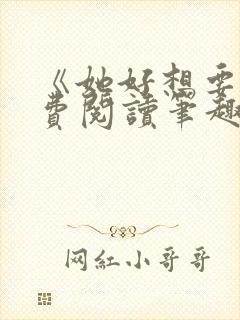 《她好想要
費閱讀筆趣
网紅小哥哥